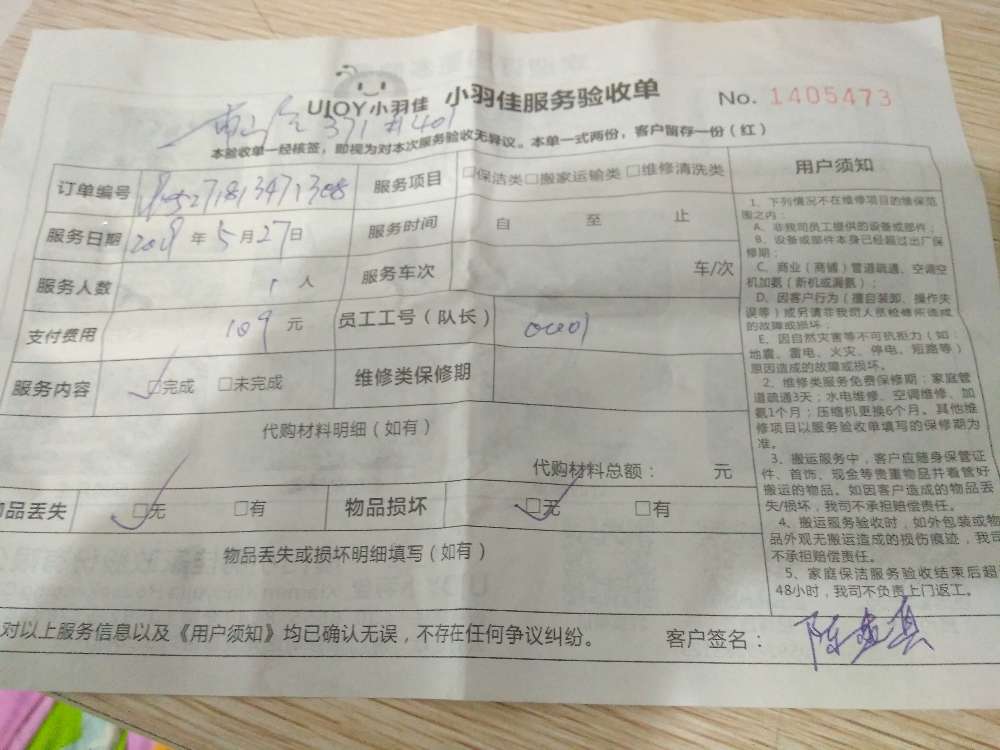 UJOY小羽佳 小羽佳服务验收单 No. 1405473
371#401
本验收单一经核签，即视为对本次服务验收无异议。本单一式两份，客户留存一份（红）
订单编号 服务项目 □保洁类□搬家运输类□维修清洗类
服务日期 2018年5月27日 服务时间 自 至 止
服务人数 1人 服务车次 车/次
支付费用 109元 员工工号（队长）
服务内容 □完成 □未完成 维修类保修期
代购材料明细（如有）
代购材料总额： 元
品丢失 □无 □有 物品损坏 □无 □有
物品丢失或损坏明细填写（如有）
对以上服务信息以及《用户须知》均已确认无误，不存在任何争议纠纷。 客户签名：
用户须知
1、下列情况不在维修项目的维保范
围之内：
A、非我司员工提供的设备或部件；
B、设备或部件本身已经超过出厂保
修期；
C、商业（商铺）管道疏通、空调空
机加氨（新机或漏氨）；
D、因客户行为（擅自装卸、操作失
误等）或另请非我司人员检修所造成
的故障或损坏；
E、因自然灾害等不可抗拒力（如：
地震、雷电、火灾、停电、短路等）
原因造成的故障或损坏。
2、维修类服务免费保修期：家庭管
道疏通3天；水电维修、空调维修、加
氨1个月；压缩机更换6个月。其他维
修项目以服务验收单填写的保修期为
准。
3、搬运服务中，客户应随身保管证
件、首饰、现金等贵重物品并看管好
搬运的物品。如因客户造成的物品丢
失/损坏，我司不承担赔偿责任。
4、搬运服务验收时，如外包装或物
品外观无搬运造成的损伤痕迹，我司
不承担赔偿责任。
5、家庭保洁服务验收结束后超
48小时，我司不负责上门返工。